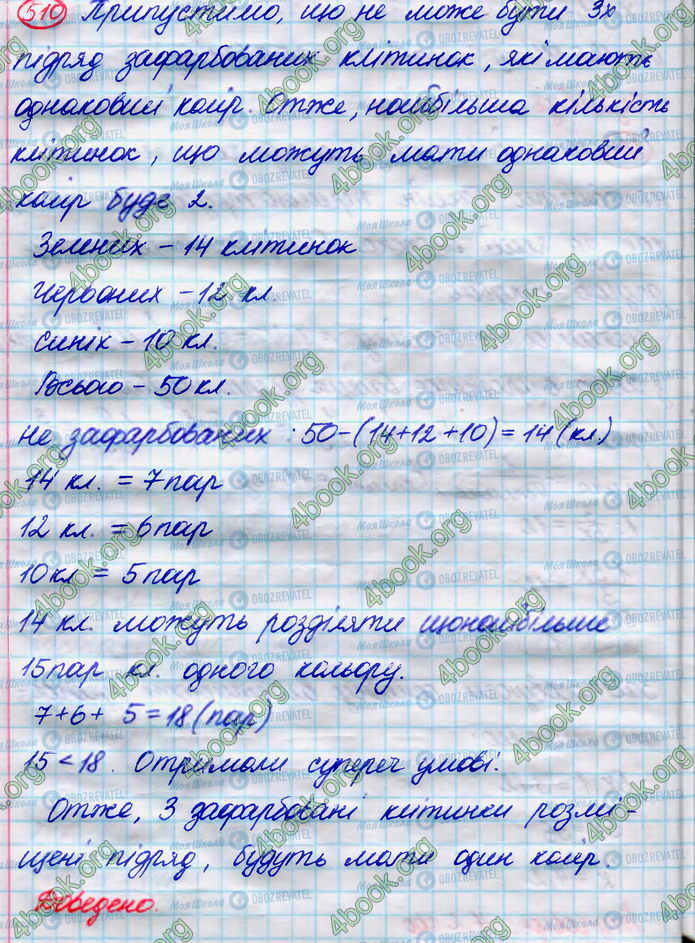 510 Припустимо, що не може бути 3х
підряд зафарбованих клітинок, які мають
однаковий колір. Отже, найбільша кількість
клітинок, що можуть мати однаковий
колір буде 2.
Зелених - 14 клітинок
Червоних - 12 кл.
Синіх - 10 кл.
Всього - 50 кл.
Не зафарбованих : 50-(14+12+10)=14(кл.)
14 кл. = 7 пар
12 кл. = 6 пар
10 кл = 5 пар
14 кл. можуть розділяти щонайбільше
15 пар кл. одного кольору.
7+6+ 5=18(пар)
15<18. Отримали супереч умові.
Отже, 3 зафарбовані китинки розмі-
щені підряд, будуть мати один колір.
Доведено.